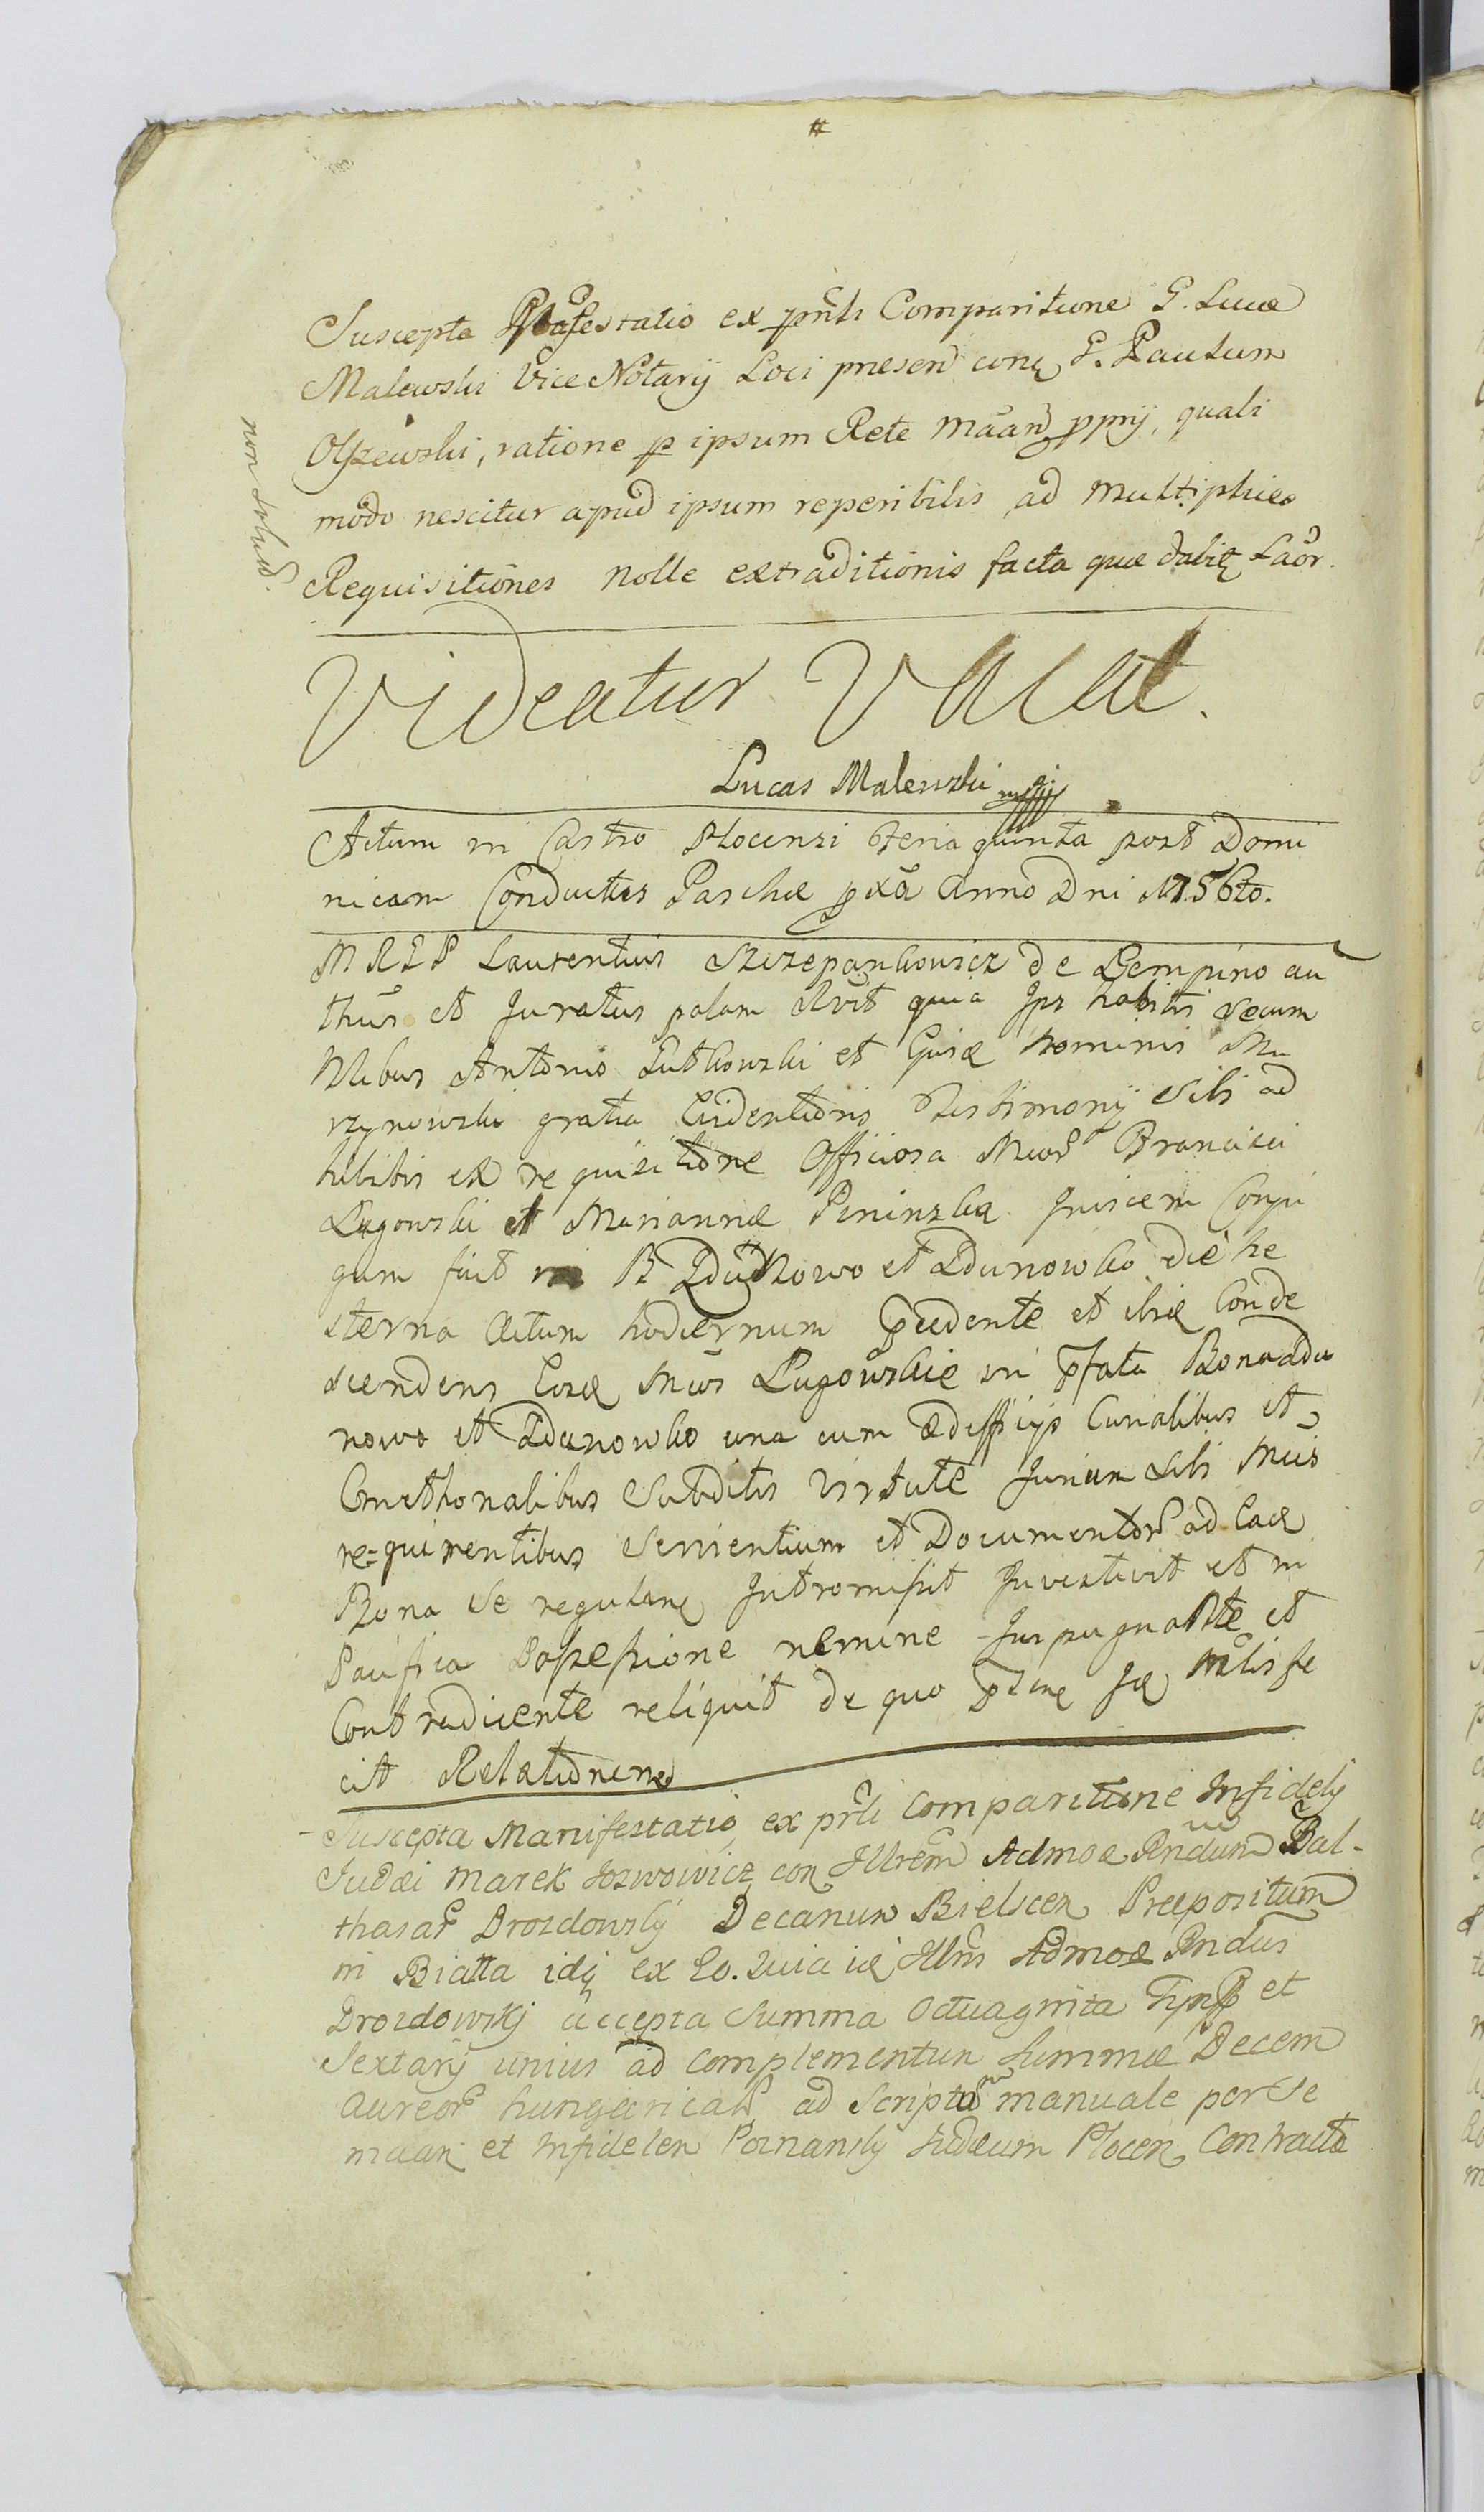 #
Suscepta Manifestatio ex prnti Comparitione G. Lucae
Malewski Vice Notarij Loci presen conq G. Paulum
Olszewski, ratione p ipsum Rete maan pprij, quali
modo nescitur apud ipsum reperibilis, ad multiplices
Requisitiones nolle extraditionis facta quae dabitq Laor.
non solud.
Videatur Vacat.
Lucas Malewski mpp
Actum in Castro Plocensi feria quinta post Domi
nicam Conductus Paschae pxa Anno Dni 1756to.
MRSP Laurentius Szczepankowicz de Lempino au
thus et Juratus palam rvit quia Ips habitis secum
Nlibus Antonio Lutkowski et
rzynowski gratia Evidentioris Testimonij sibi ad
hibitis ex requisitione Officiosa Mcor Francisci
Lugowski et Mariannae Peninska Invicem Conju
gum fuit in B Zdunowo et Zdunowko die he
sterna Actum hodiernum pcedente et ibiq Conde
scendens Eosq Mcos Lugowskie in pfata Bona Zdu
nowo et Zdunowko una cum aedifficijs Curialibus et
Cmethonalibus Subditis Virtute Jurium sibi Mcis
re=quirentibus Servientium et Documentor ad Eaq
Bona se regulanq Intromisit Investivit et in
Pacifica Possessione nemine Inpugnante et
Contradicente reliquit de quo pinq Jq Mlis fe
cit Relationem
Suscepta Manifestatio ex prti Comparitione Infidelis
Judaei Marek Jozwowicz con Illrem Admoq Rndum Bal-
thasar Drozdowskj Decanum Bielscen Praepositum
in Biała idq ex Eo. Quia iq Illris Admoq Rndus
Drozdowskj accepta Summa Octuaginta Tynff et
Sextarij unius ad complementum Summae Decem
Aureor hungaricals ad Scriptum manuale per se
maan et Infidelem Poznanskj Judaeum Plocen Contracta